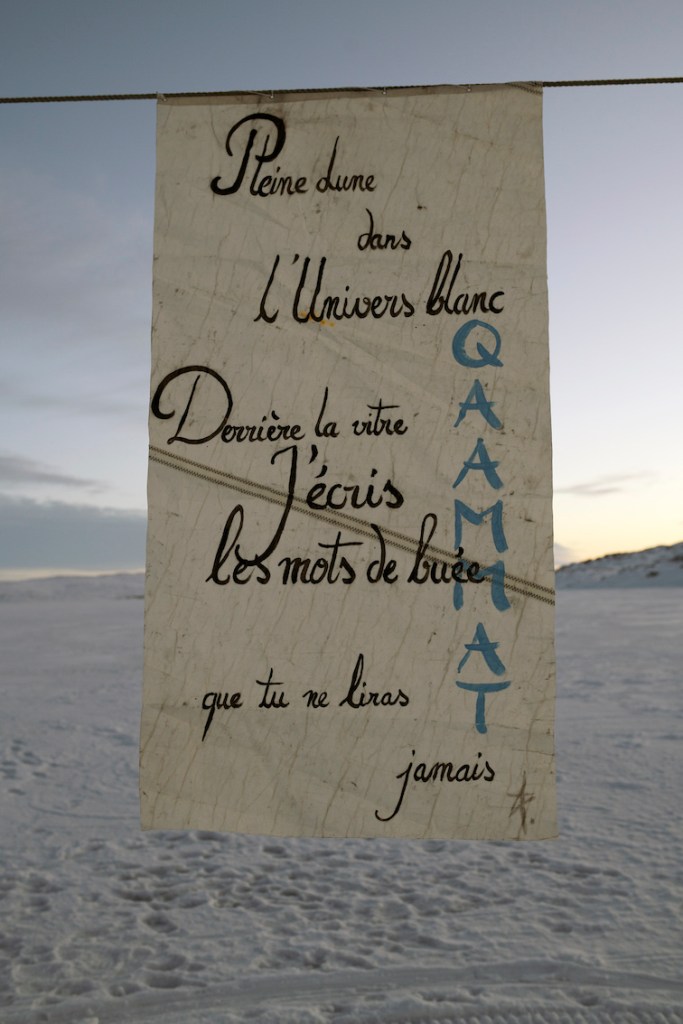 Pleine lune
dans
l'Univers blanc
Derrière la vitre
J'écris
les mots de buée
que tu ne liras
jamais
QAAMMAT